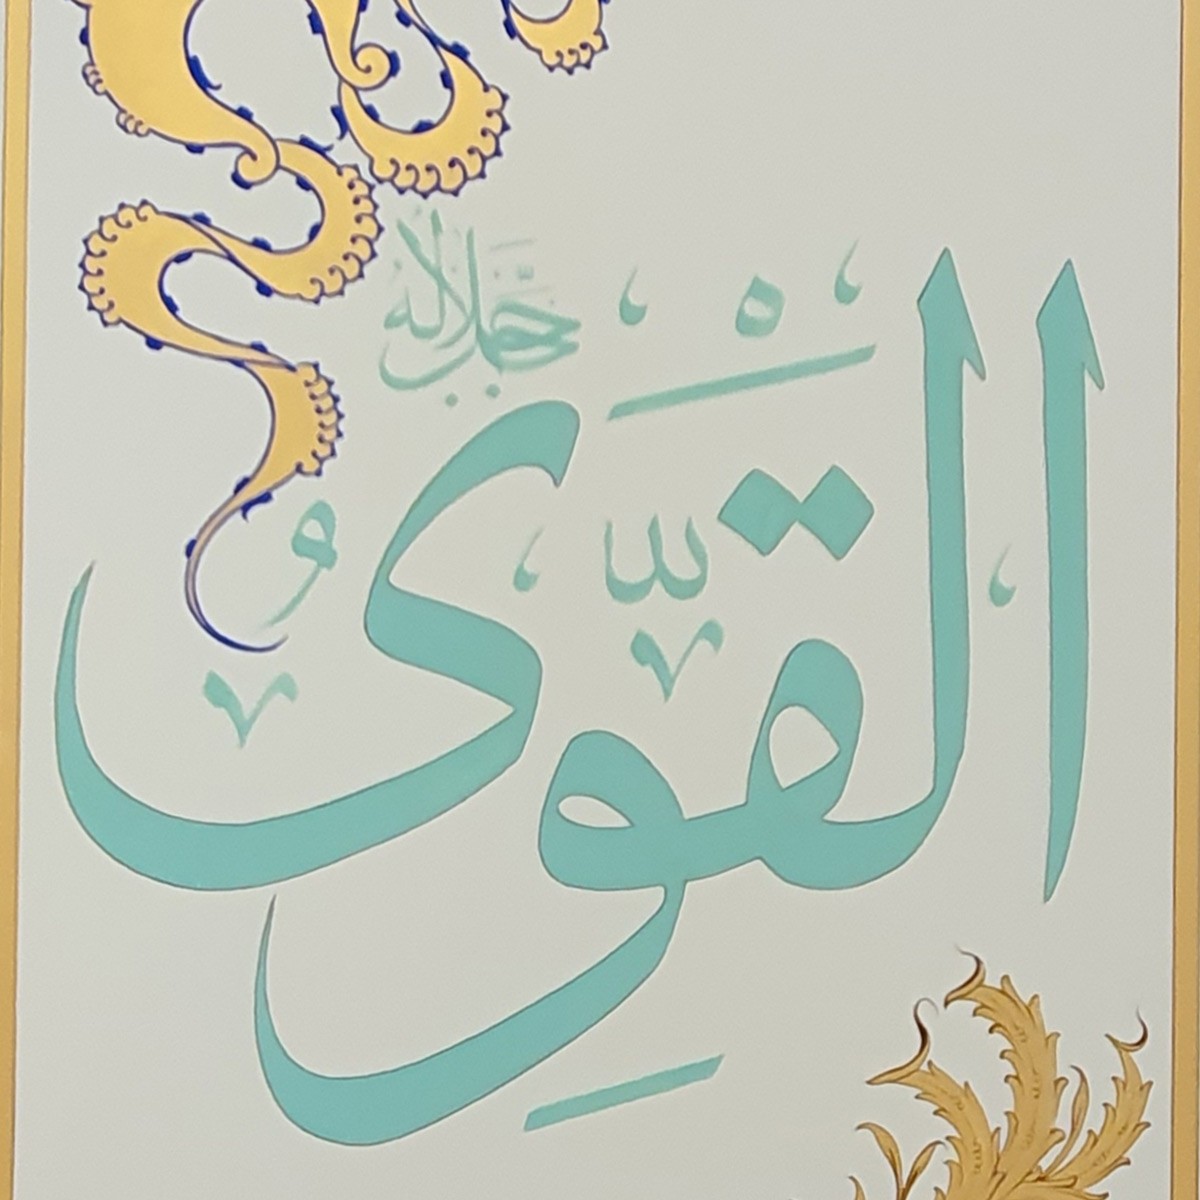 القَوِى
جل جلاله